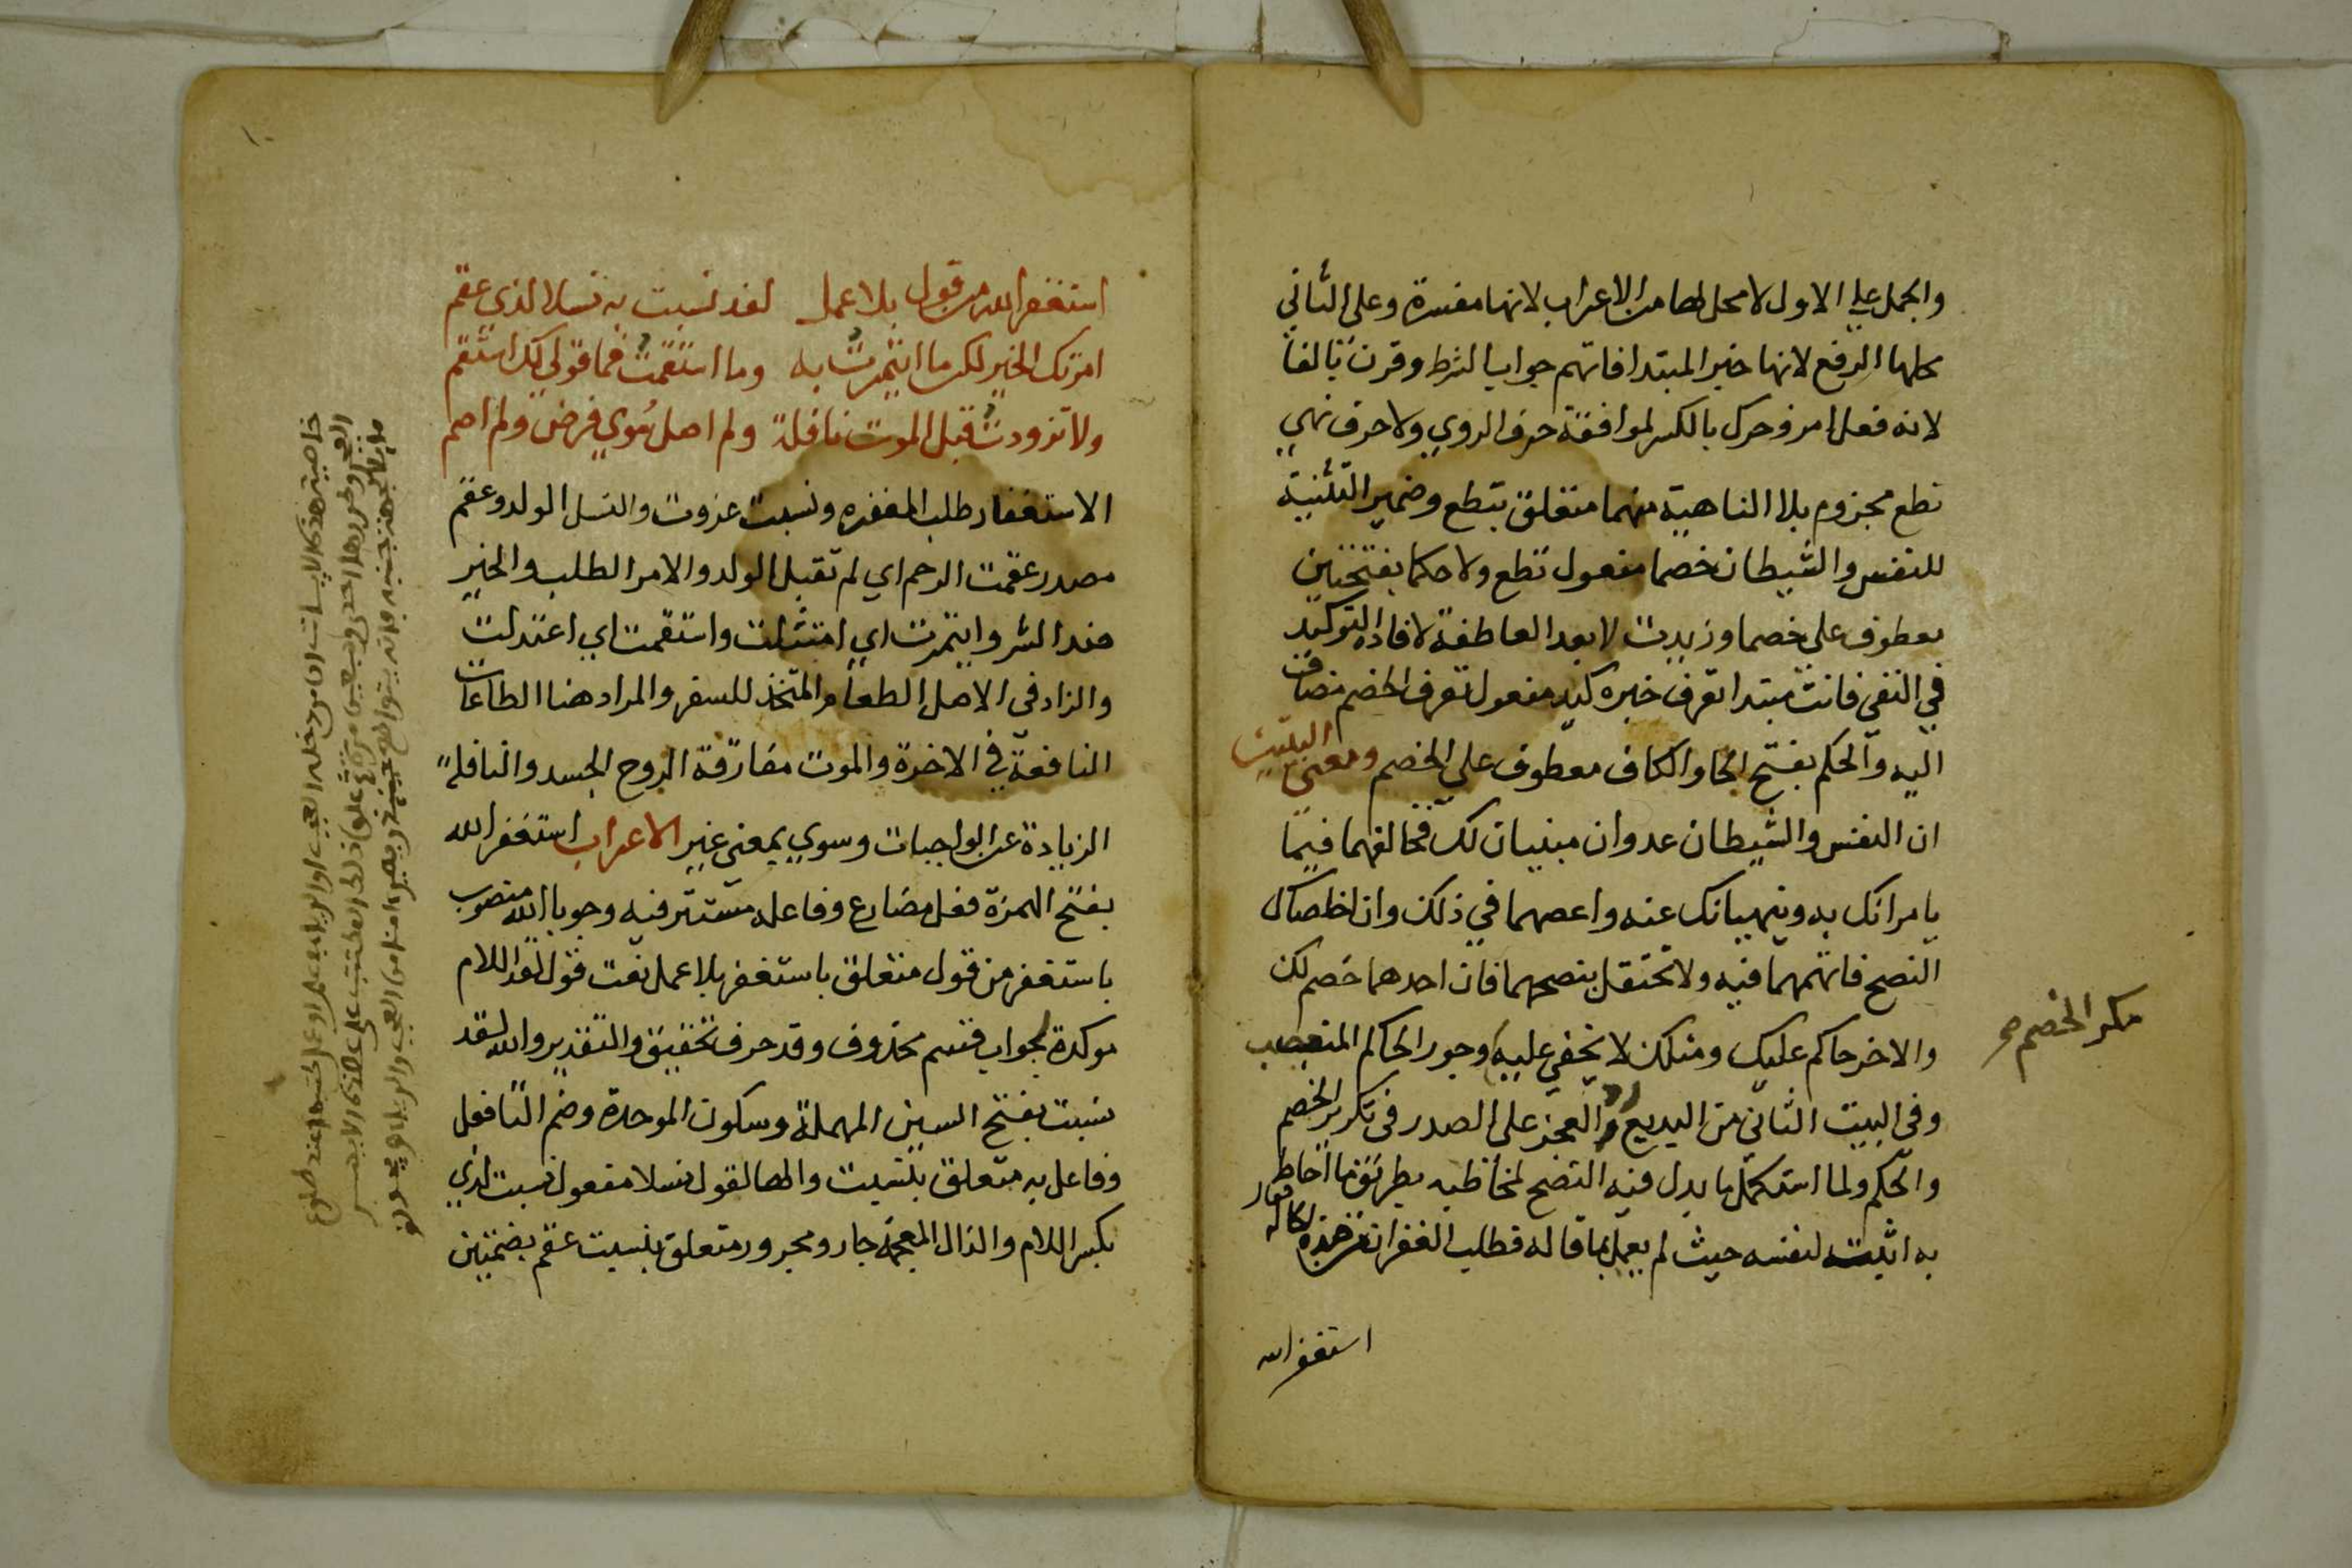 والجمل علي الاول لا محل لها من الاعراب لانها مفسرة وعلى الثاني
محلها الرفع لانها خبر المبتدا فاتهم جواب الشرط وقرن بالفا
لانه فعل امر وحرك بالكسر لموافقة حرف الروي ولا حرف نهي
تطع مجزوم بلا الناهية منهما متعلق بتطع وضمير التثنية
للنفس والشيطان خصما مفعول تطع ولا حكما بفتحتين
معطوف على خصما وزيدت لا بعد العاطفة لافادة التوكيد
في النفي فانت مبتدا تعرف خبره كيد مفعول تعرف الخصم مضاف
اليه والحكم بفتح الحا والكاف معطوف على الخصم ومعنى البيتين
ان النفس والشيطان عدوان مبنيان لك فخالفهما فيما
يامرانك به وينهيانك عنه واعصهما في ذلك وان اخلصاك
النصح فاتهمهما فيه ولا تحتفل بنصحهما فان احدهما خصم لك
والاخر حاكم عليك ومثلك لا يخفي عليه وجور الحاكم المتعصب
مكر الخصم صح
وفى البيت الثاني من البديع رد العجز على الصدر فى تكرير الخصم
والحكم ولما استكمل ما بدل فيه النصح لمخاطبه بطريق ما احاط
به اثبت لنفسه حيث لم يعمل بما قاله فطلب الغفران من هذه
استغفر الله
استغفر الله من قول بلا عمل لقد نسبت به نسلا لذي عقم
امرتك الخير لكن ما ايتمرت به وما استقمت فما قولي لك استقم
ولا تزودت قبل الموت نافلة ولم اصل سوي فرض ولم اصم
الاستغفار طلب المغفره ونسبت عزوت والنسل الولد وعقم
مصدر عقمت الرحم اي لم تقبل الولد والامر الطلب والخير
ضد الشر وايتمرت اي امتثلت واستقمت اي اعتدلت
والزاد فى الاصل الطعام المتخذ للسفر والمراد هنا الطاعات
النافعة في الاخرة والموت مفارقة الروح الجسد والنافلة
الزيادة عن الواجبات وسوي بمعنى غير الاعراب استغفر الله
بفتح الهمزة فعل مضارع وفاعله مستتر فيه وجوبا الله منصوب
باستغفر من قول متعلق باستغفر بلا عمل نعت قول لقد اللام
موكدة لجواب قسم محذوف وقد حرف تحقيق والتقدير والله لقد
نسبت بفتح السين المهملة وسكون الموحدة وضم التا فعل
وفاعل به متعلق بنسبت والها لقول نسلا مفعول نسبت لذي
بكسر اللام والذال المعجمة جار ومجرور متعلق بنسبت عقم بضمتين